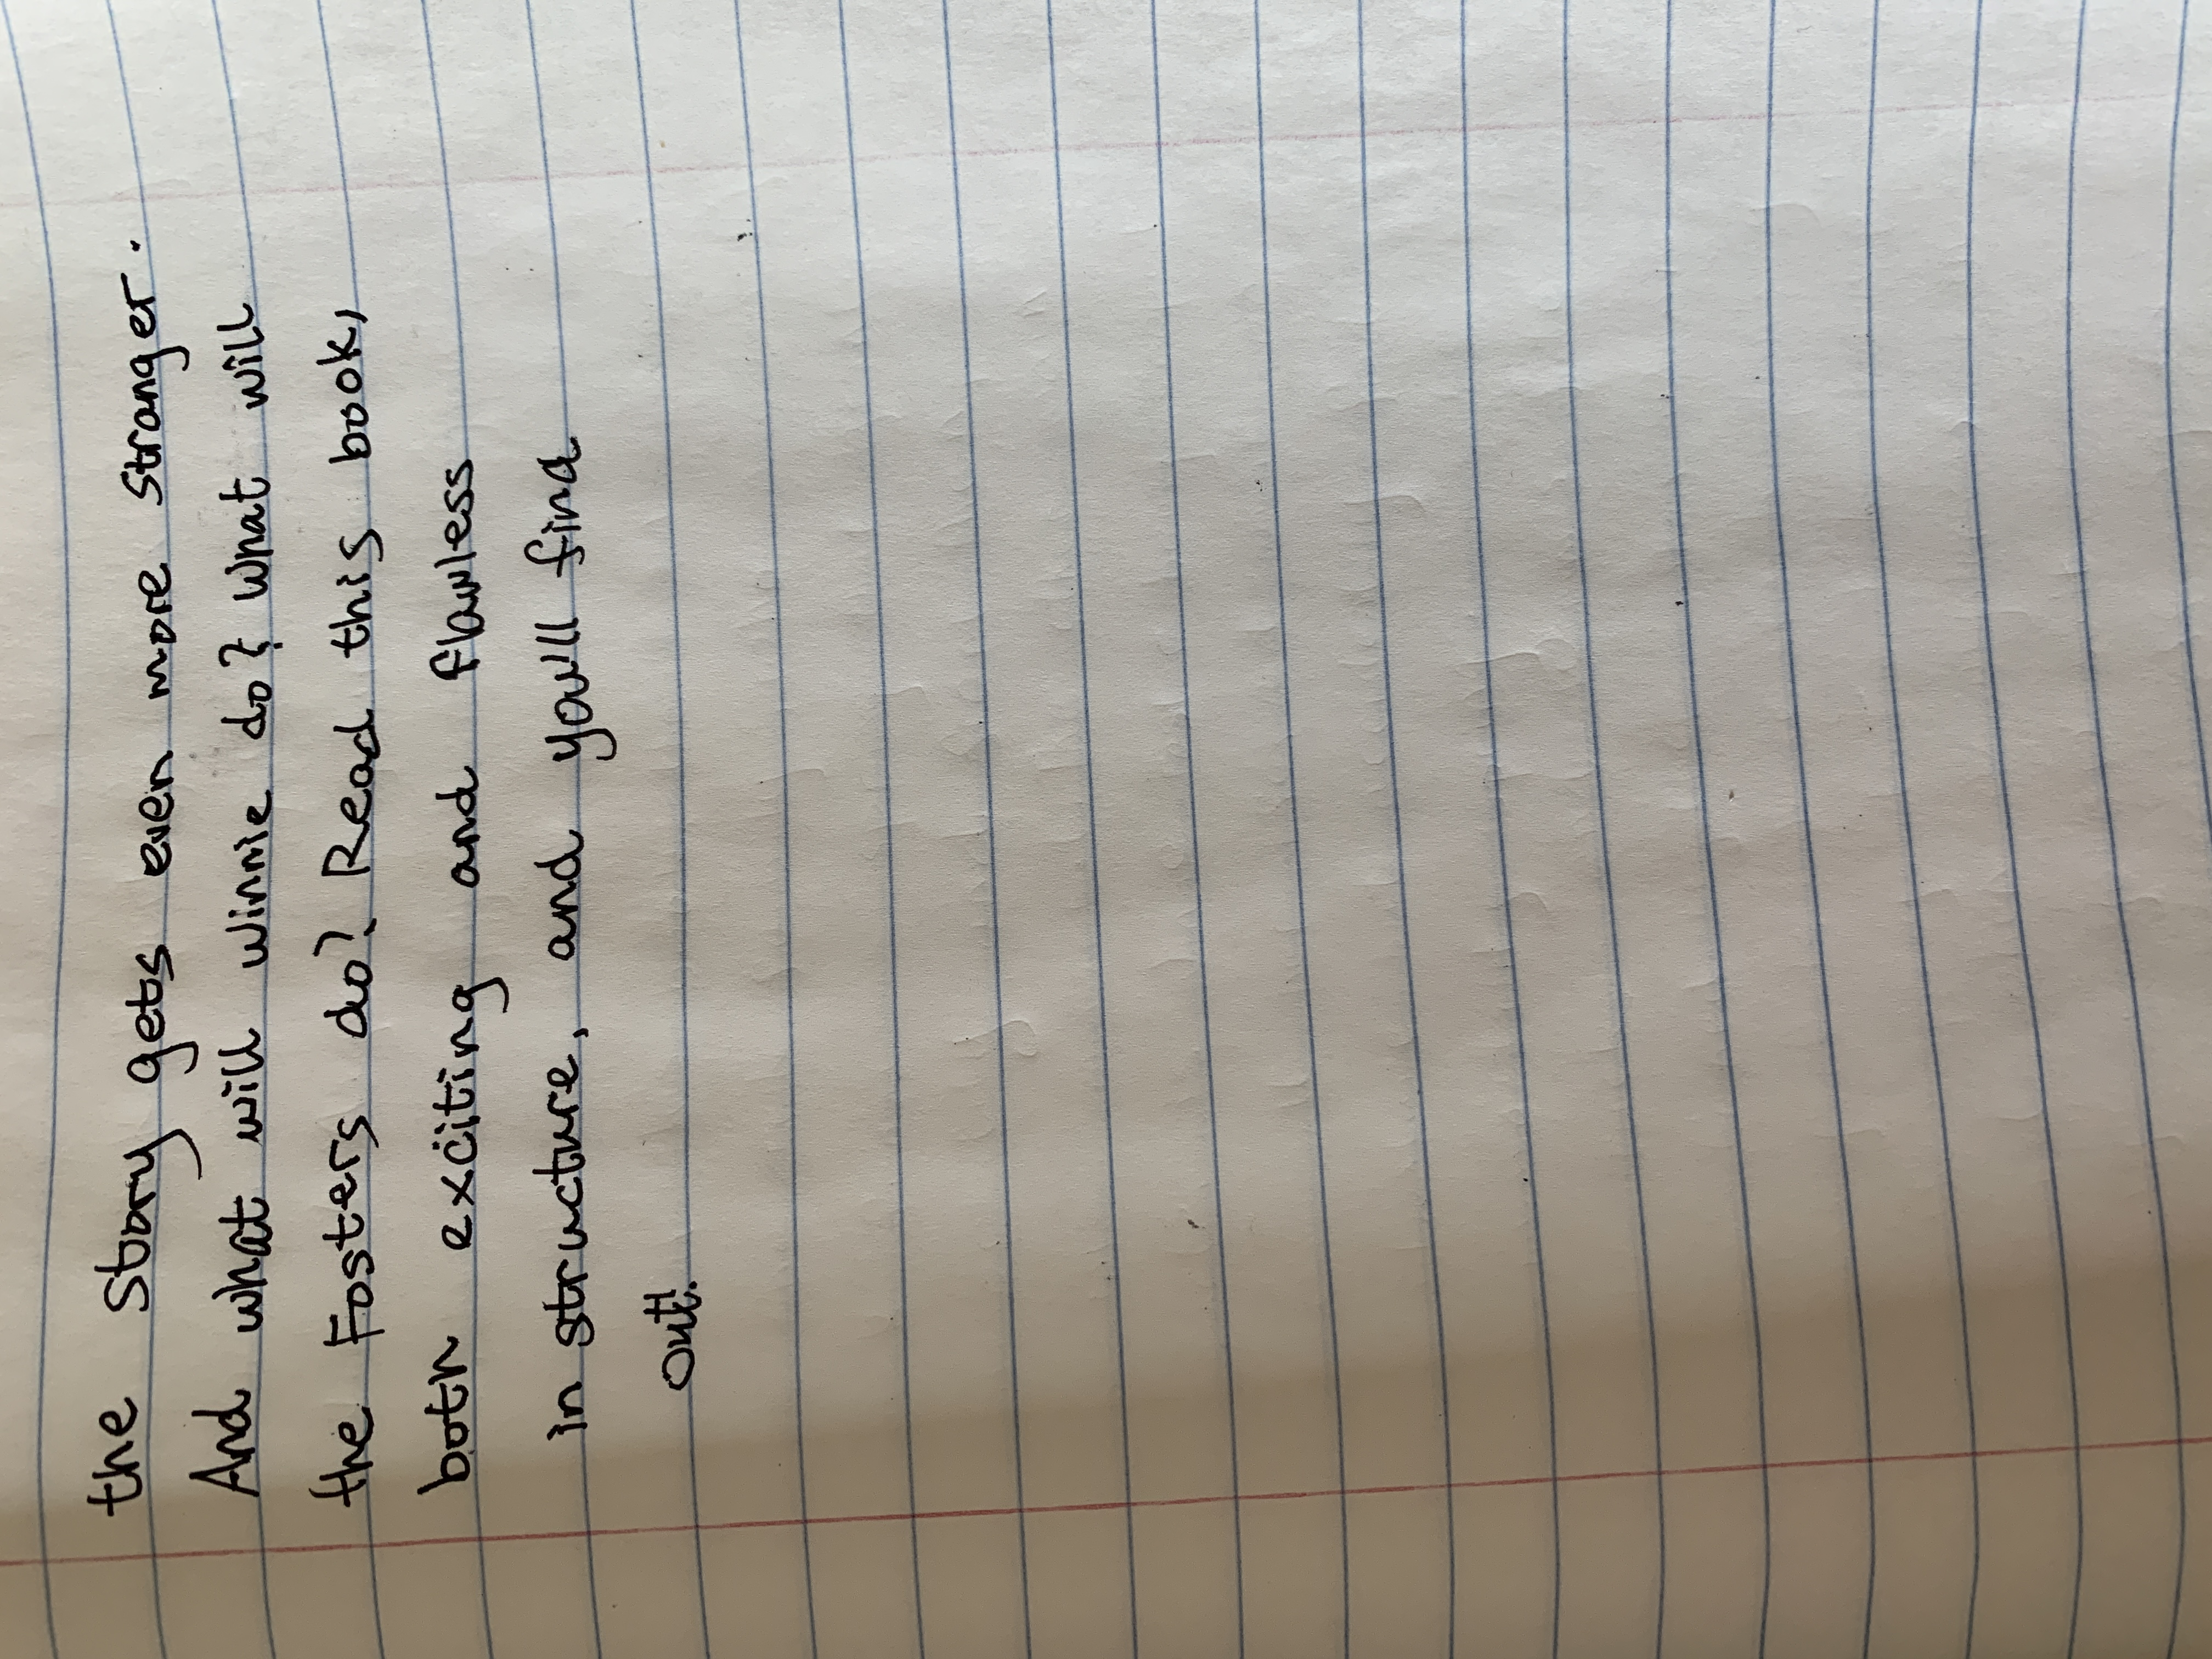 the story gets even more stranger.
And what will Winnie do? What will
the Fosters do? Read this book,
both exciting and flawless
in structure, and you'll find
out!